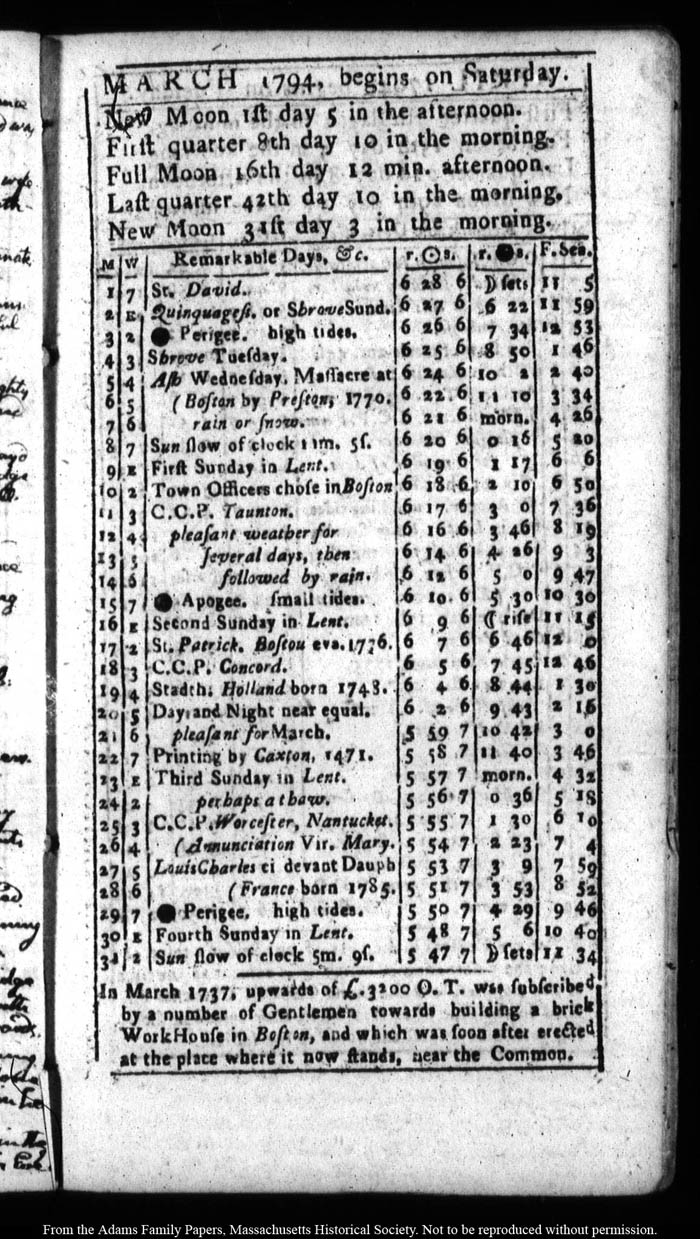 MARCH 1794, begins on Saturday.
New Moon 1st day 5 in the afternoon.
First quarter 8th day 10 in the morning.
Full Moon 16th day 12 min. afternoon.
Last quarter 42th day 10 in the morning.
New Moon 31st day 3 in the morning.
M W Remarkable Days, &c. r. ☉ s. r. ● s. F. Sea.
1 7 St. David. 6 28 6 ☽ sets 11 5
2 E Quinquages. or Shrove Sund. 6 27 6 6 22 11 59
3 2 ● Perigee. high tides. 6 26 6 7 34 12 53
4 3 Shrove Tuesday. 6 25 6 8 50 1 46
5 4 Ash Wednesday. Massacre at 6 24 6 10 2 2 40
6 5 (Boston by Preston, 1770. 6 22 6 11 10 3 34
7 6 rain or snow. 6 21 6 morn. 4 26
8 7 Sun slow of clock 11m. 5s. 6 20 6 0 16 5 20
9 E First Sunday in Lent. 6 19 6 1 17 6 6
10 2 Town Officers chose in Boston 6 18 6 2 10 6 50
11 3 C.C.P. Taunton. 6 17 6 3 0 7 36
12 4 pleasant weather for 6 16 6 3 46 8 19
13 5 several days, then 6 14 6 4 26 9 3
14 6 followed by rain. 6 12 6 5 0 9 47
15 7 ● Apogee. small tides. 6 10 6 5 30 10 30
16 E Second Sunday in Lent. 6 9 6 ☾ rise 11 15
17 2 St. Patrick. Bostou eva. 1776. 6 7 6 6 46 12 0
18 3 C.C.P. Concord. 6 5 6 7 45 12 46
19 4 Stadth. Holland born 1748. 6 4 6 8 44 1 30
20 5 Day and Night near equal. 6 2 6 9 43 2 16
21 6 pleasant for March. 5 59 7 10 42 3 0
22 7 Printing by Caxton, 1471. 5 58 7 11 40 3 46
23 E Third Sunday in Lent. 5 57 7 morn. 4 32
24 2 perhaps a thaw. 5 56 7 0 36 5 18
25 3 C.C.P. Worcester, Nantucket. 5 55 7 1 30 6 10
26 4 (Annunciation Vir. Mary. 5 54 7 2 23 7 4
27 5 Louis Charles ci devant Dauph 5 53 7 3 9 7 59
28 6 (France born 1785. 5 51 7 3 53 8 52
29 7 ● Perigee. high tides. 5 50 7 4 29 9 46
30 E Fourth Sunday in Lent. 5 48 7 5 6 10 40
31 2 Sun slow of clock 5m. 9s. 5 47 7 ☽ sets 11 34
In March 1737, upwards of £.3200 O. T. was subscribed
by a number of Gentlemen towards building a brick
WorkHouse in Boston, and which was soon after erected
at the place where it now stands, near the Common.
From the Adams Family Papers, Massachusetts Historical Society. Not to be reproduced without permission.